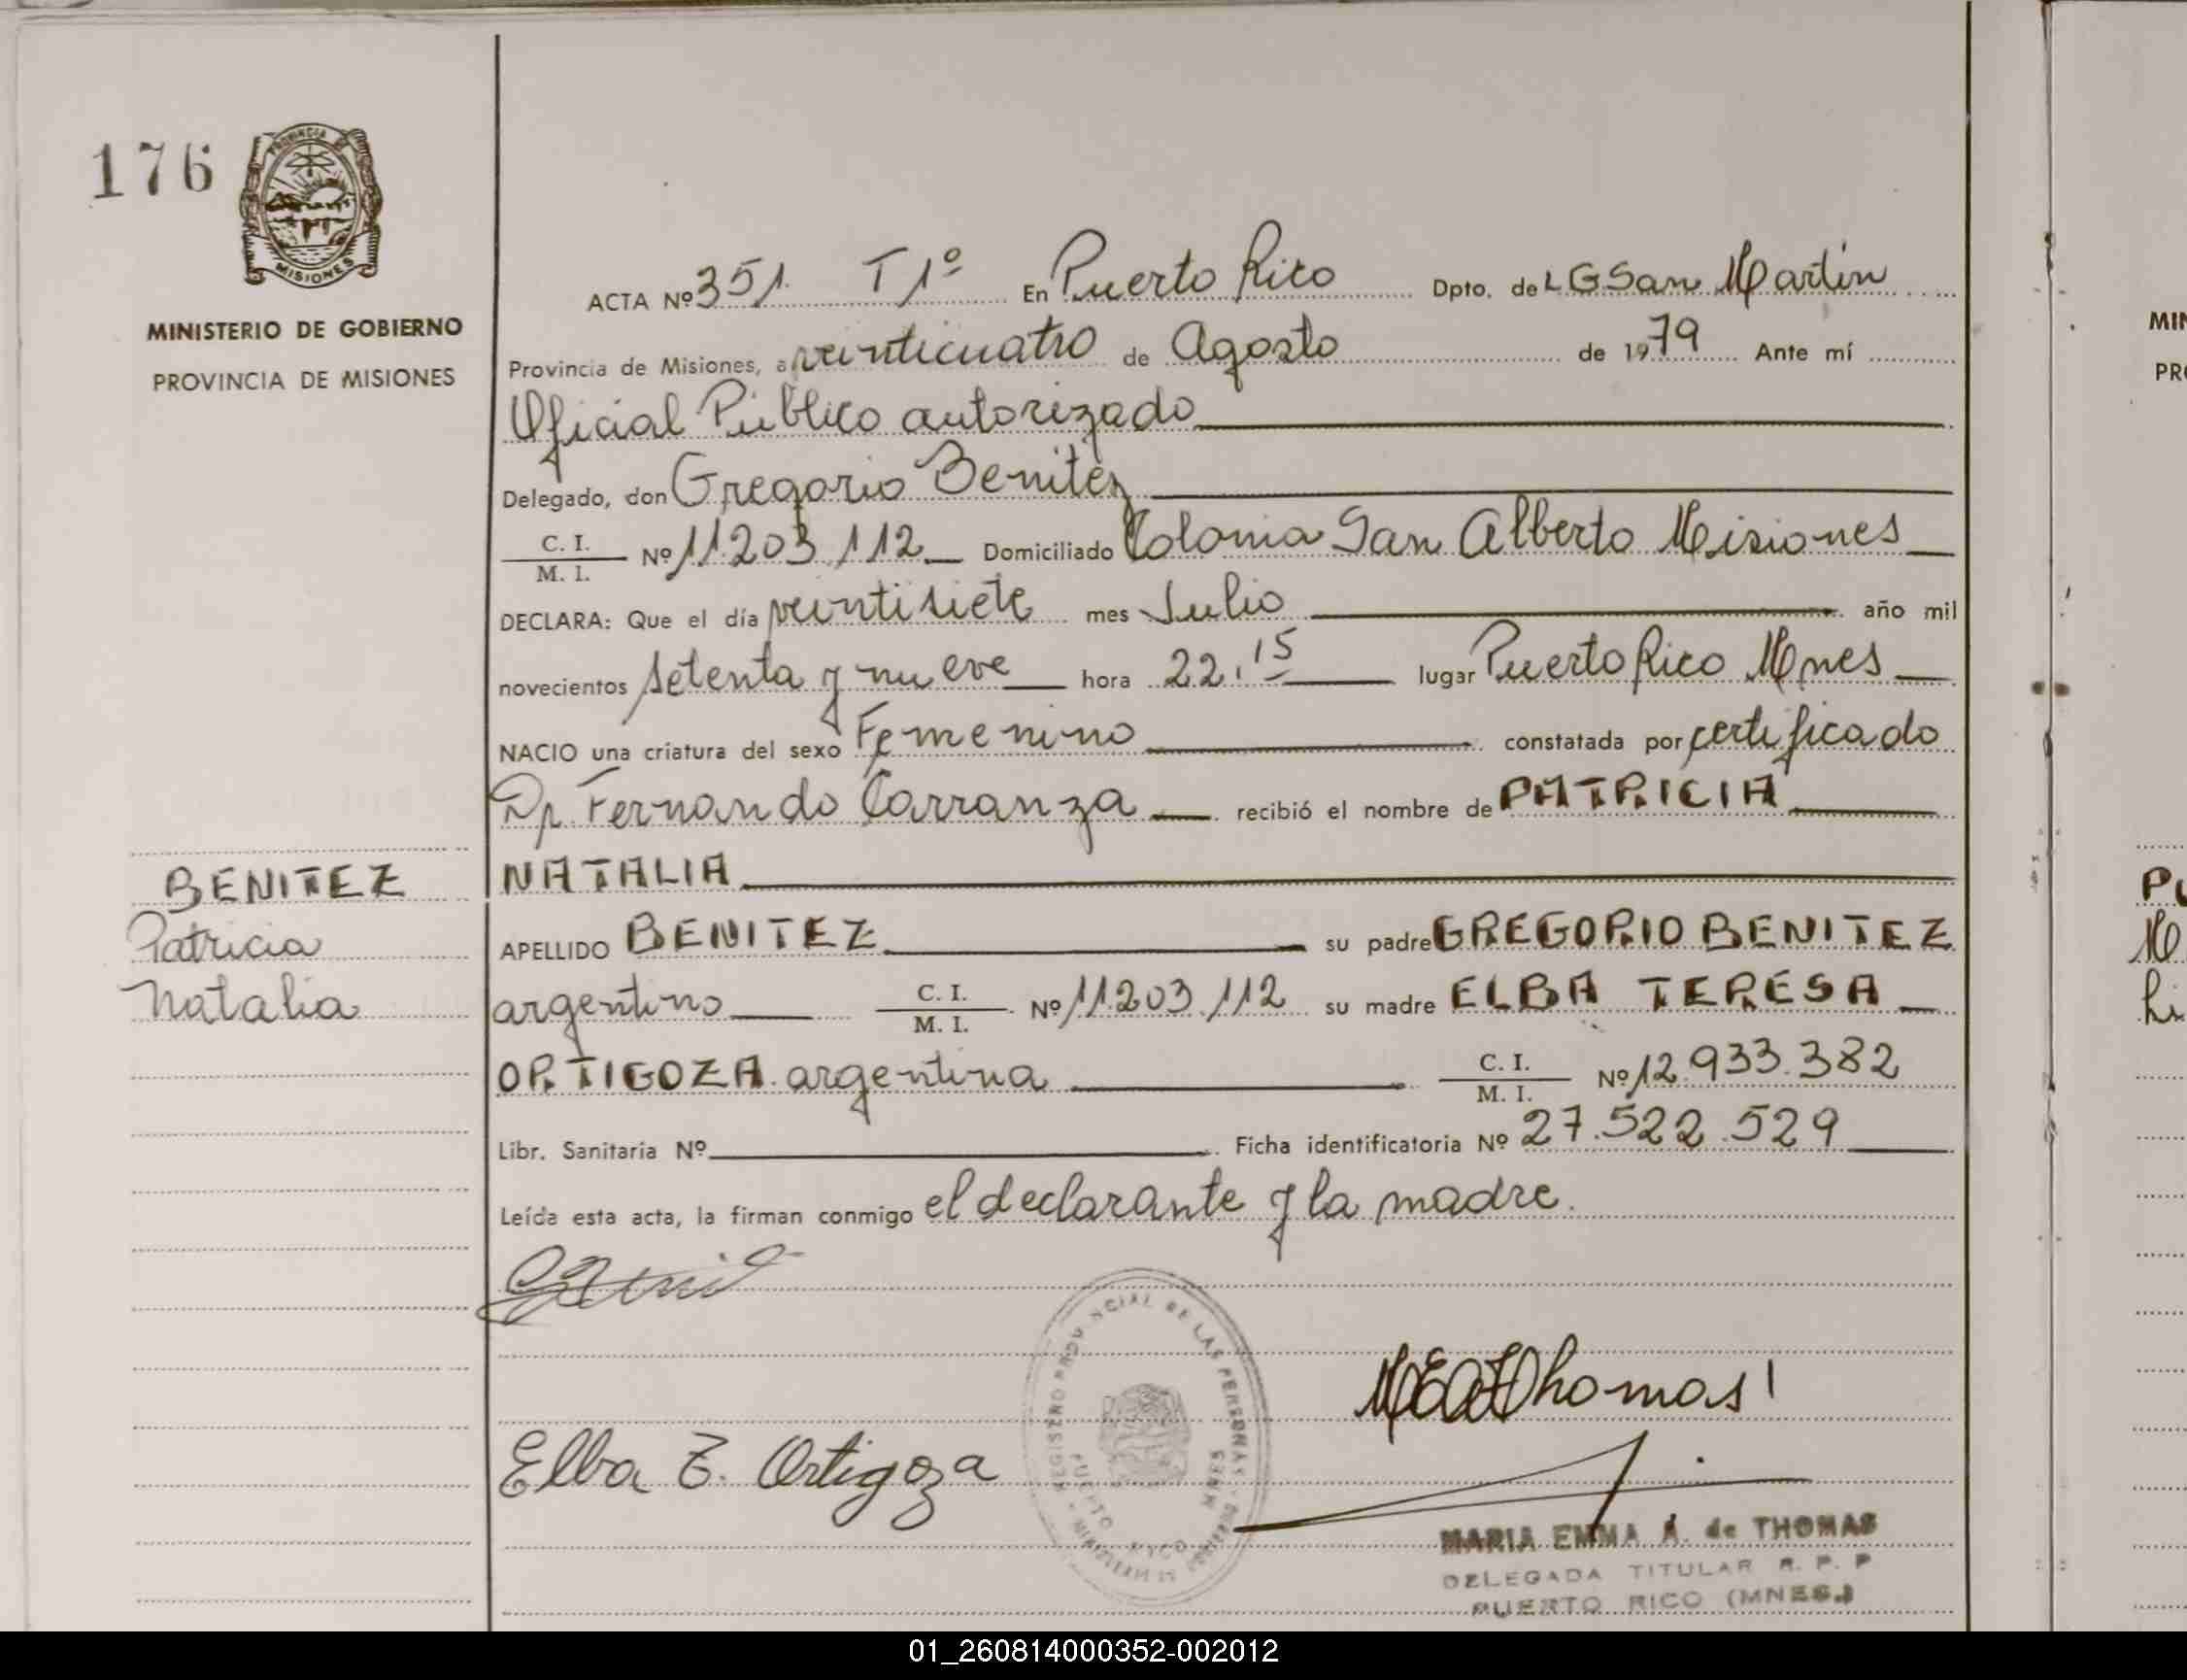 176
PROVINCIA DE
MISIONES
MINISTERIO DE GOBIERNO
PROVINCIA DE MISIONES
BENITEZ
Patricia
Natalia
ACTA Nº 351. T 1º En Puerto Rico Dpto. de L G San Martín
Provincia de Misiones, a veinticuatro de Agosto de 1979 Ante mí
Oficial Público autorizado
Delegado, don Gregorio Benitez
C. I. / M. I. Nº 11.203.112 Domiciliado Colonia San Alberto Misiones
DECLARA: Que el día veintisiete mes Julio año mil
novecientos setenta y nueve hora 22,15 lugar Puerto Rico Mnes
NACIO una criatura del sexo Femenino constatada por certificado
Dr. Fernando Carranza recibió el nombre de PATRICIA
NATALIA
APELLIDO BENITEZ su padre GREGORIO BENITEZ
argentino C. I. / M. I. Nº 11.203.112 su madre ELBA TERESA
ORTIGOZA argentina C. I. / M. I. Nº 12.933.382
Libr. Sanitaria Nº Ficha identificatoria Nº 27.522.529
Leída esta acta, la firman conmigo el declarante y la madre.
REGISTRO PROVINCIAL DE LAS PERSONAS
PUERTO RICO MNES
Thomas
Elba T. Ortigoza
MARIA EMMA A. de THOMAS
DELEGADA TITULAR R. P. P
PUERTO RICO (MNES.)
MIN
PR
PU
01_260814000352-002012